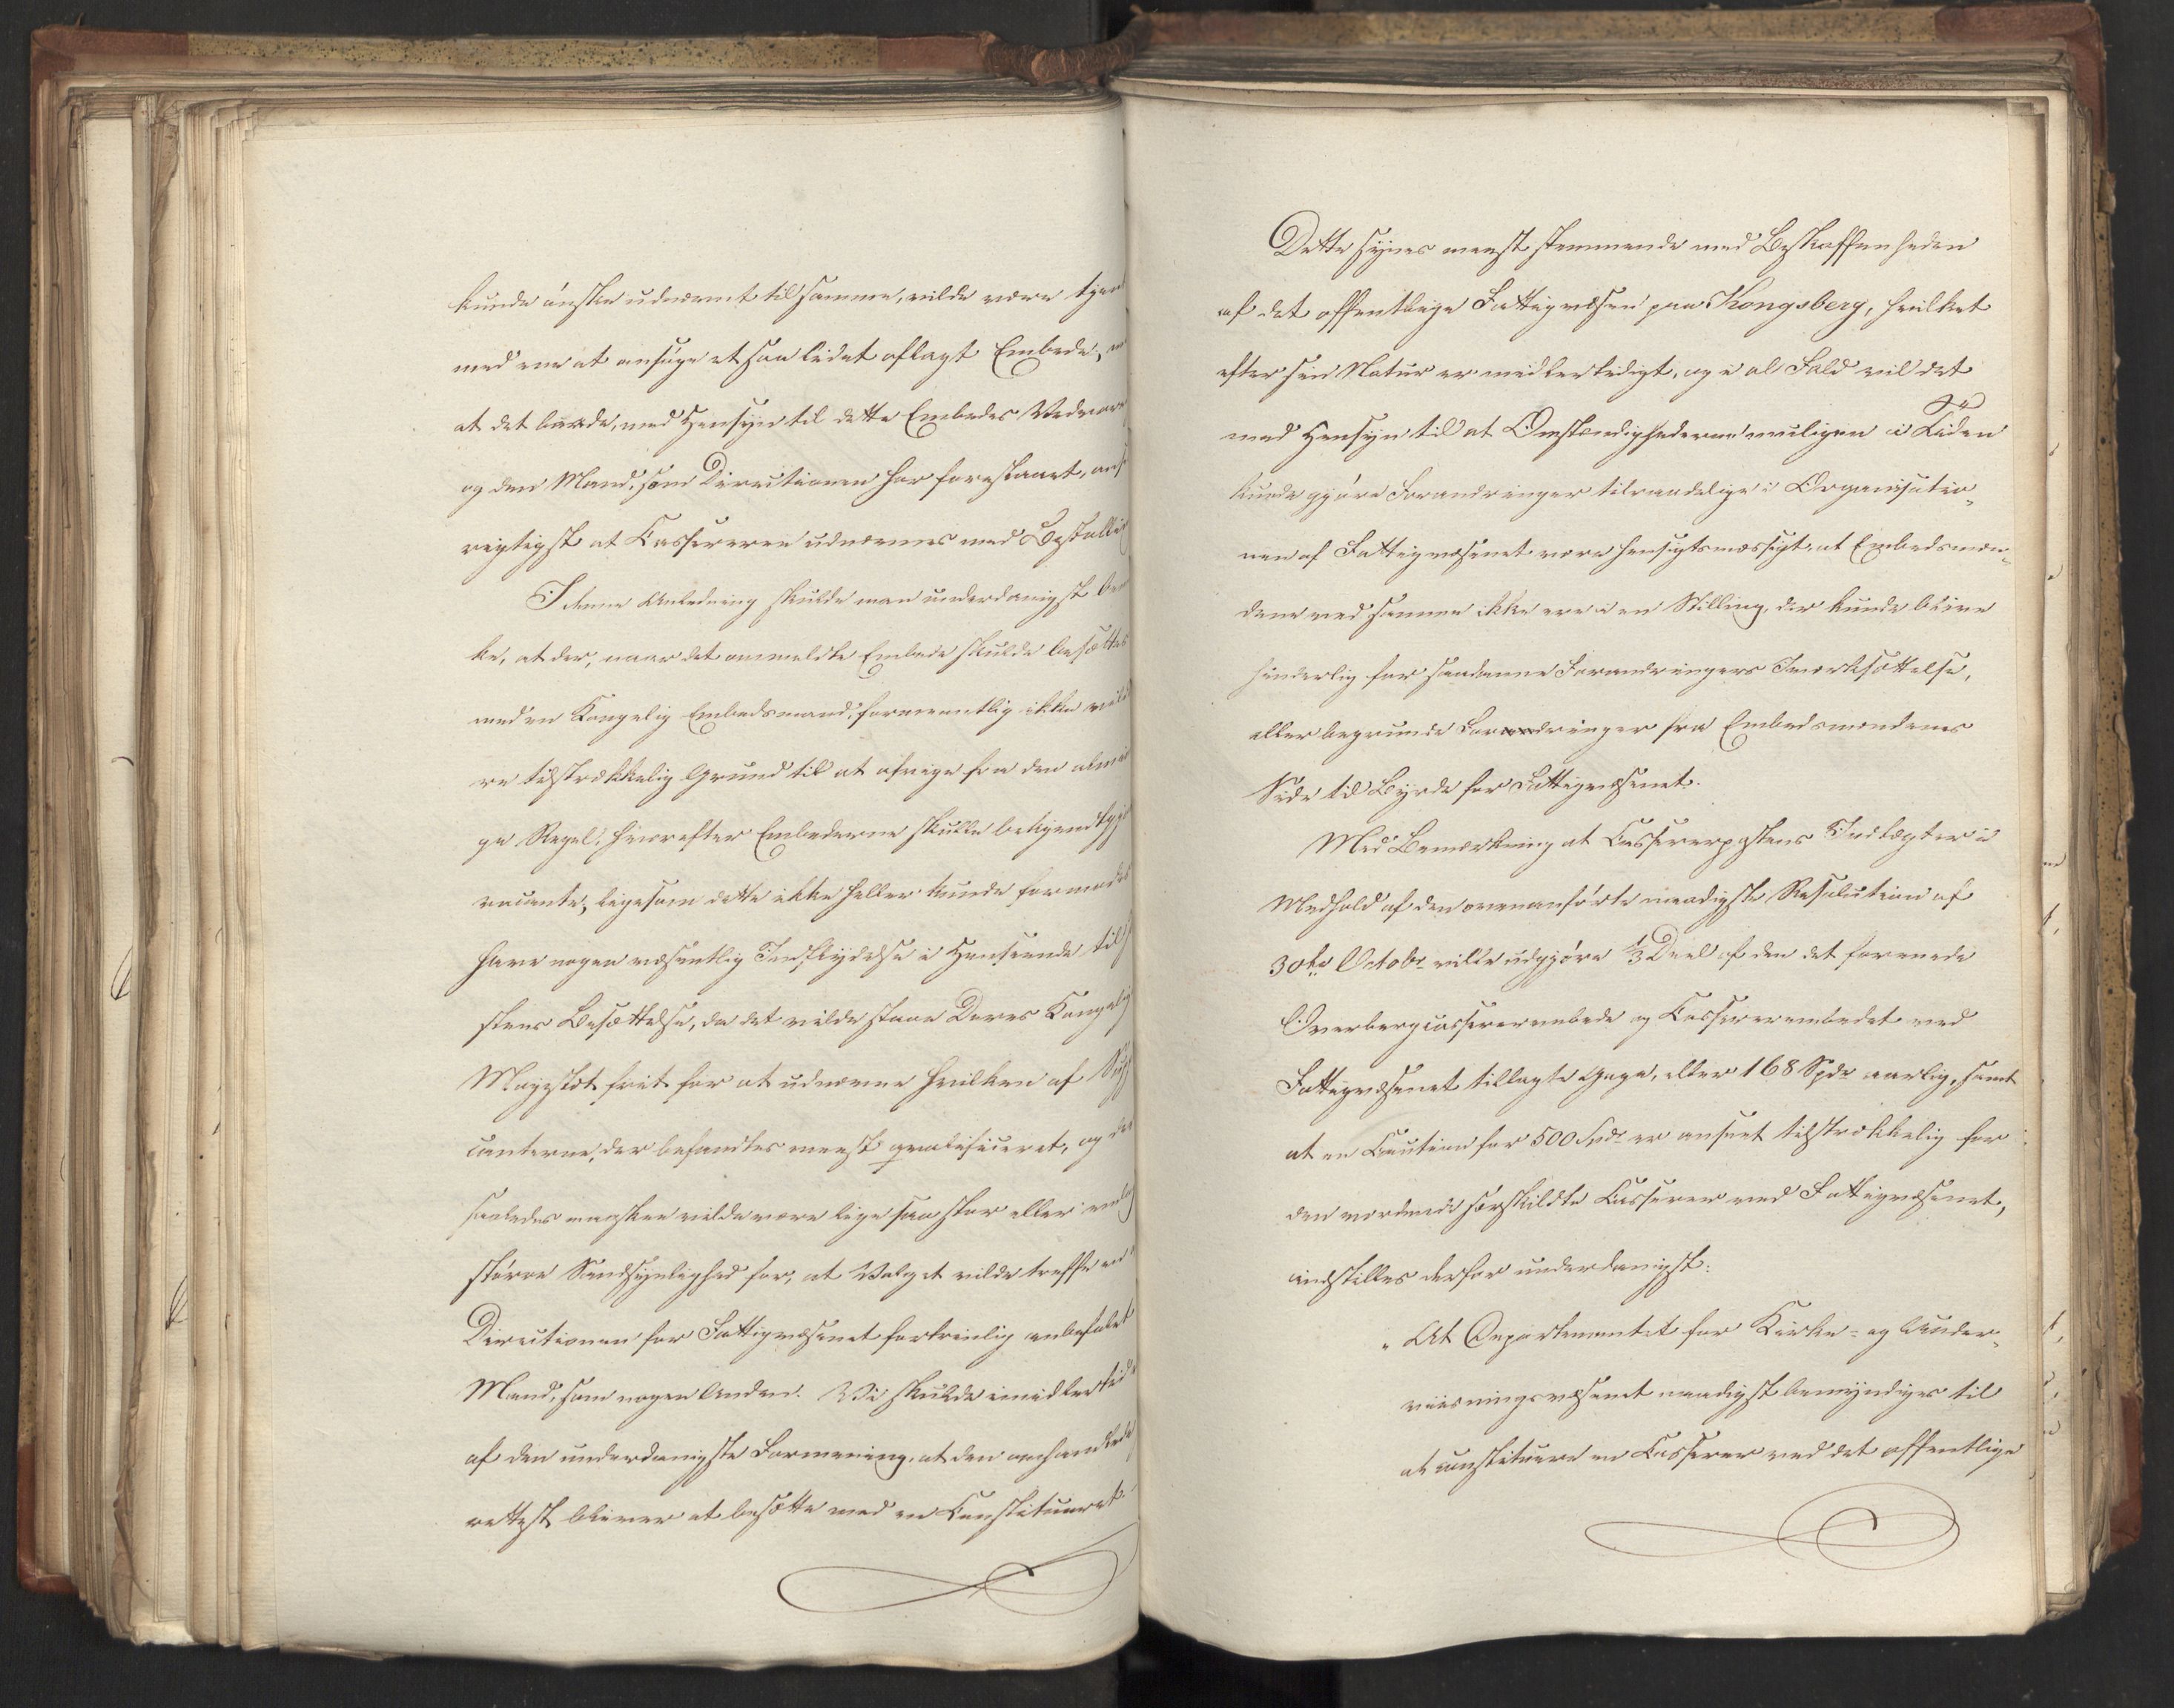 kunde ønske udnævnt til samme, vilde være tjent
med ene at ansøge et saa lidet aflagt Embede,
at det burde, med Hensyn til dette Embedes Vedvaren
og den Mand, som Directionen har foreslaaet, ans
rigtigst at Cassereren udnævnes med Bestalling
I denne Anledning skulde man underdanigst bem
ke, at der, naar det ommeldte Embede skulde besættes
med en Kongelig Embedsmand, formeentlig ikke vild
re tilstrækkelig Grund til at afvige fra den almin
ge Regel, hvorefter Embederne skulle bekjendtgj
vacante, ligesom dette ikke heller kunde formodes
have nogen væsentlig Indflydelse i Henseende til
stens Besættelse, da det vilde staae Deres Kongelig
Majestæt frit for at udnævne hvilken af Sup
canterne, der befandtes meest qvalificeret, og der
saaledes maaskee vilde være lige saa stor eller endog
større Sandsynlighed for, at Valget vilde treffe en
Directionen for Fattigvæsenet fortrinlig anbefalet
Mand, som nogen Anden. Vi skulde imidlertid
af den underdanigste Formening, at den omhandlede
rettest bliver at besætte med en Constitueret.
Dette synes meest stemmende med Beskaffenheden
af det offentlige Fattigvæsen paa Kongsberg, hvilket
efter sin Natur er midlertidigt, og i al Fald vil det
med Hensyn til at Omstændighederne muligen i Tiden
kunde gjøre Forandringer tilraadelige i Organisatio-
nen af Fattigvæsenet være hensigtsmæssigt, at Embedsmæn-
dene ved samme ikke ere i en Stilling, der kunde blive
hinderlig for saadanne Forandringers Iværksættelse,
eller begrunde Fordringer fra Embedsmændenes
Side til Byrde for Fattigvæsenet.
Med Bemærkning at Cassererpostens Indtægter i
Medhold af den ovenanførte naadigste Resolution af
30te Octobr vilde udgjøre 1/3 Deel af den det forenede
Overbergcassererembede og Cassererembedet ved
Fattigvæsenet tillagte Gage, eller 168 Spdr aarlig, samt
at en Caution for 500 Spdr er anseet tilstrækkelig for
den vordende særskildte Casserer ved Fattigvæsenet,
indstilles derfor underdanigst:
"At Departementet for Kirke- og Under-
viisningsvæsenet naadigst bemyndiges til
at constituere en Casserer ved det offentlige